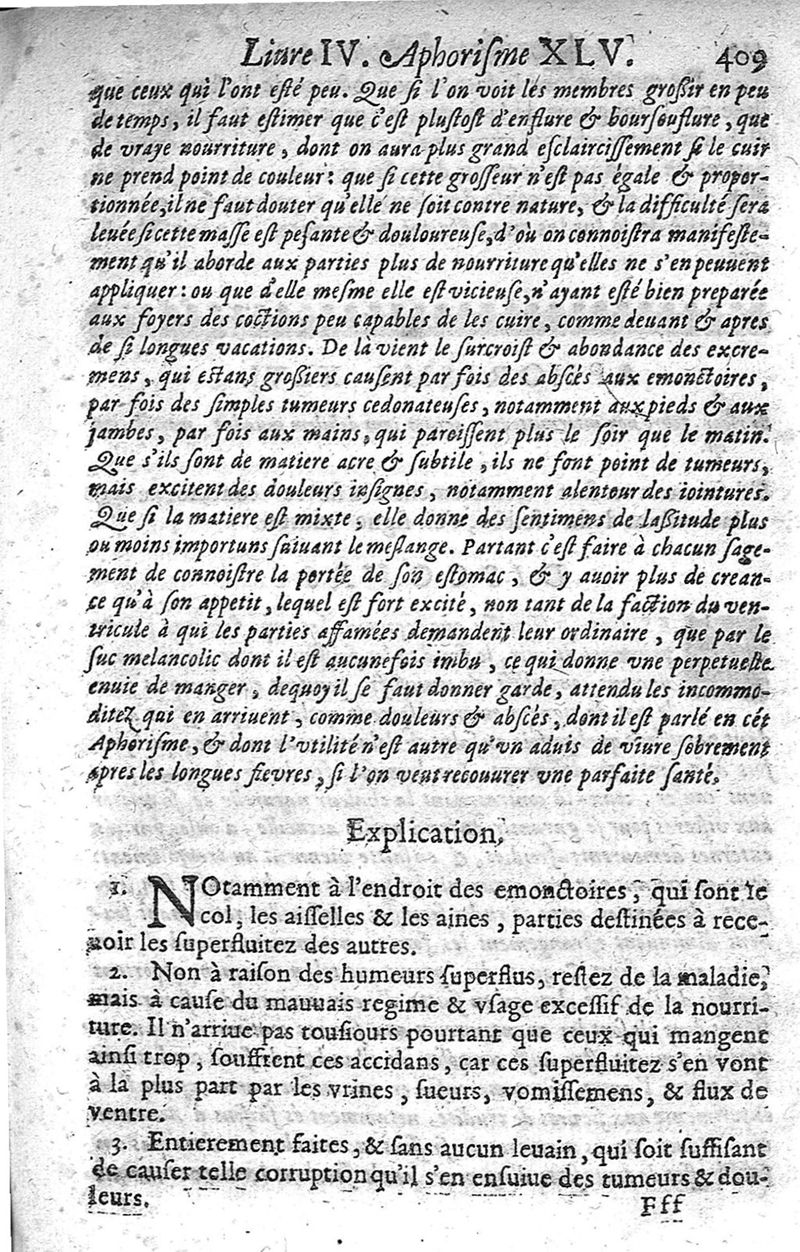 Liure IV. Aphoriſme XLV. 409
que ceux qui l'ont eſté peu. Que ſi l'on voit les membres groſsir en peu
de temps, il faut eſtimer que c'eſt pluſtoſt d'enflure & bourſouflure, que
de vraye nourriture, dont on aura plus grand eſclairciſſement ſi le cuir
ne prend point de couleur: que ſi cette groſſeur n'eſt pas égale & propor-
tionnée, il ne faut douter qu'elle ne ſoit contre nature, & la difficulté ſera
leuée ſi cette maſſe eſt peſante & douloureuſe, d'où on connoiſtra manifeſte-
ment qu'il aborde aux parties plus de nourriture qu'elles ne s'en peuuent
appliquer: ou que d'elle meſme elle eſt vicieuſe, n'ayant eſté bien preparée
aux foyers des coctions peu capables de les cuire, comme deuant & apres
de ſi longues vacations. De là vient le ſurcroiſt & abondance des excre-
mens, qui eſtans groſsiers cauſent par fois des abſcés aux emonctoires,
par fois des ſimples tumeurs œdonateuſes, notamment aux pieds & aux
jambes, par fois aux mains, qui paroiſſent plus le ſoir que le matin.
Que s'ils ſont de matiere acre & ſubtile, ils ne font point de tumeurs,
mais excitent des douleurs inſignes, notamment alentour des iointures.
Que ſi la matiere eſt mixte, elle donne des ſentimens de laſsitude plus
ou moins importuns ſuiuant le meſlange. Partant c'eſt faire à chacun ſage-
ment de connoiſtre la portée de ſon eſtomac, & y auoir plus de crean-
ce qu'à ſon appetit, lequel eſt fort excité, non tant de la faction du ven-
tricule à qui les parties affamées demandent leur ordinaire, que par le
ſuc melancolic dont il eſt aucunefois imbu, ce qui donne vne perpetuelle
enuie de manger, dequoy il ſe faut donner garde, attendu les incommo-
ditez qui en arriuent, comme douleurs & abſcés, dont il eſt parlé en cét
Aphoriſme, & dont l'vtilité n'eſt autre qu'vn aduis de viure ſobrement
apres les longues fievres, ſi l'on veut recouurer vne parfaite ſanté.
Explication.
1. NOtamment à l'endroit des emonctoires, qui ſont le
col, les aiſſelles & les aines, parties deſtinées à rece-
uoir les ſuperfluitez des autres.
2. Non à raiſon des humeurs ſuperflus, reſtez de la maladie,
mais à cauſe du mauuais regime & vſage exceſſif de la nourri-
ture. Il n'arriue pas touſiours pourtant que ceux qui mangent
ainſi trop, ſouffrent ces accidans, car ces ſuperfluitez s'en vont
à la plus part par les vrines, ſueurs, vomiſſemens, & flux de
ventre.
3. Entierement faites, & ſans aucun leuain, qui ſoit ſuffiſant
de cauſer telle corruption qu'il s'en enſuiue des tumeurs & dou-
leurs.
Fff